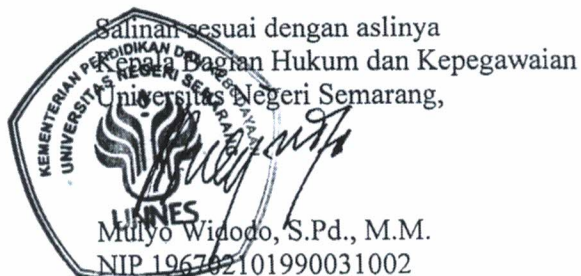 Salinan sesuai dengan aslinya
Kepala Bagian Hukum dan Kepegawaian
Universitas Negeri Semarang,
KEMENTERIAN PENDIDIKAN DAN KEBUDAYAAN
UNIVERSITAS NEGERI SEMARANG
UNNES
Mulyo Widodo, S.Pd., M.M.
NIP 196702101990031002